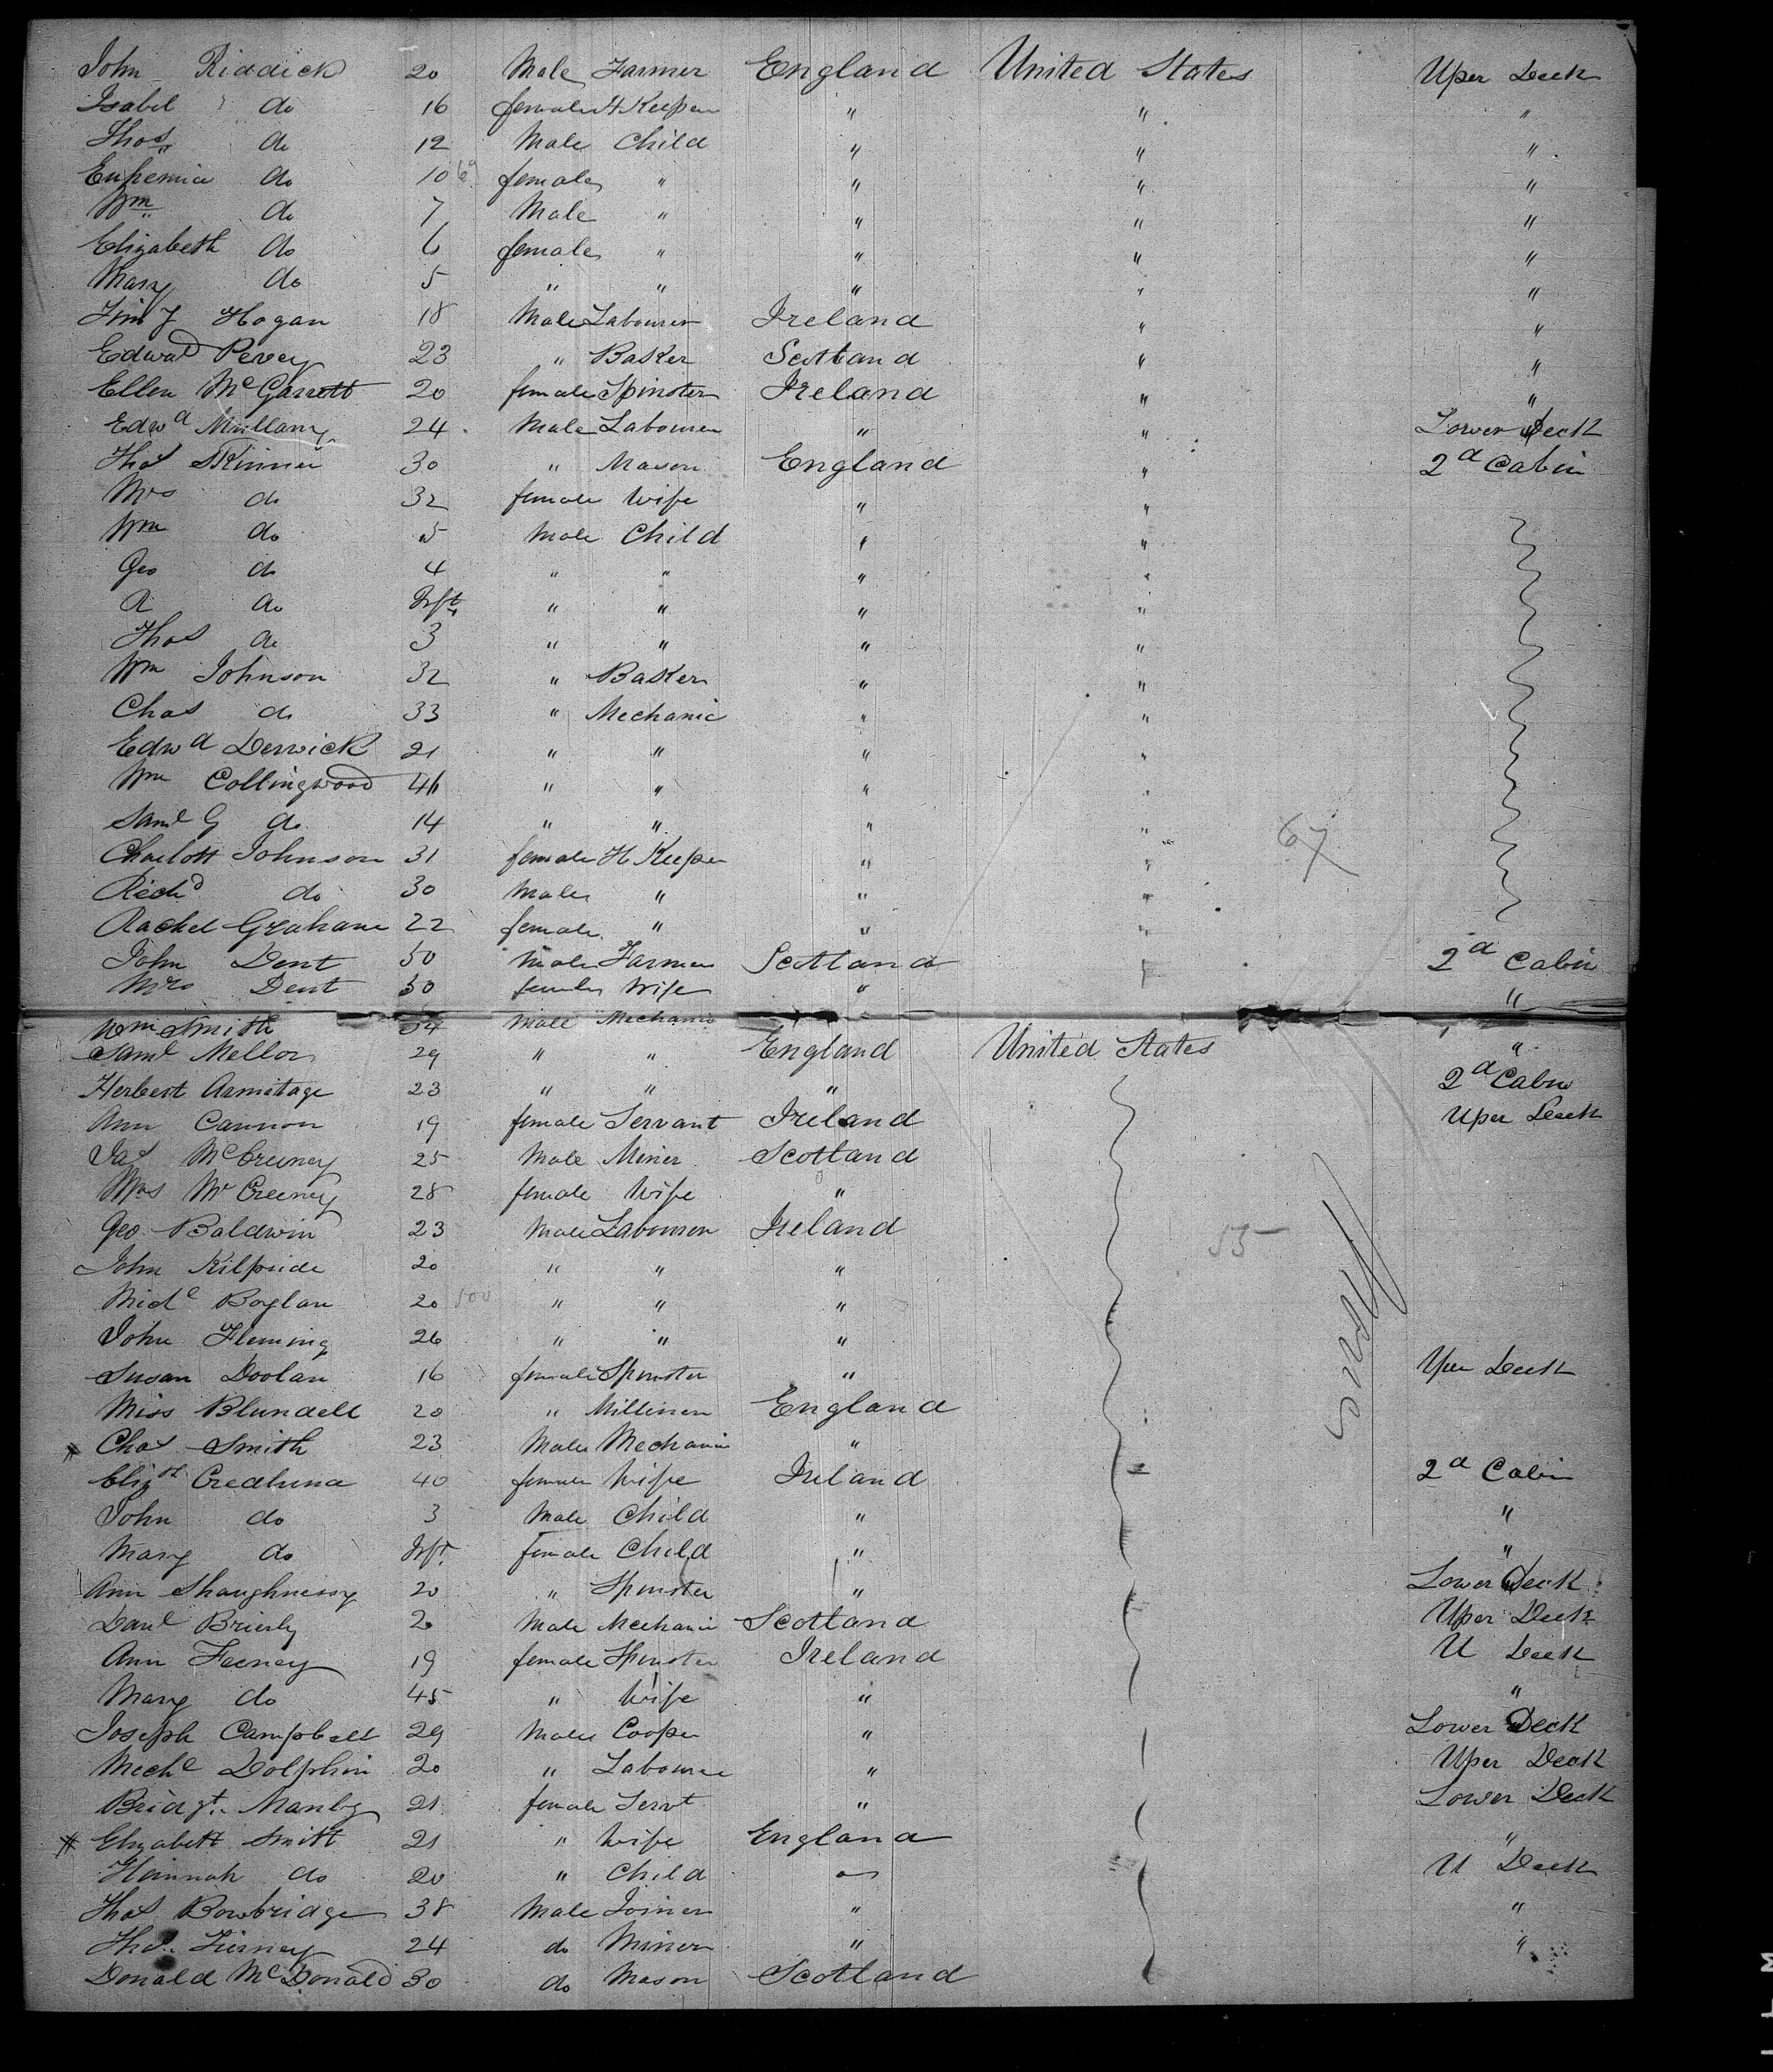 John Riddick 20 Male Farmer England United States Uper Deck
Isabel do 16 female H Keeper " " "
Thos do 12 Male Child " " "
Euphemia do 10 female " " " "
Wm do 7 Male " " " "
Elizabeth do 6 female " " " "
Mary do 5 " " " " "
Timy Hogan 18 Male Labourer Ireland " "
Edwad Pevey 23 " Baker Scotland " "
Ellen McGarrett 20 female Spinster Ireland " "
Edwd Mullany 24 Male Labourer " " Lower Deck
Thos Skinner 30 " Mason England " 2d Cabin
Mrs do 32 female Wife " "
Wm do 5 Male Child " "
Geo do 4 " " " "
A do Inft " " " "
Thos do 3 " " " "
Wm Johnson 32 " Baker " "
Chas do 33 " Mechanic " "
Edwd Derwick 21 " " " "
Wm Collingwood 46 " " " "
Saml G do 14 " " " "
Charlott Johnson 31 female H Keeper " " 67
Richd do 30 Male " " "
Rachel Graham 22 female " " "
John Dent 50 Male Farmer Scotland " 2d Cabin
Mrs Dent 50 female Wife " "
Wm Smith 34 Male Mechanic "
Saml Mellor 29 " " England United States "
Herbert Armitage 23 " " " 2d Cabin
Ann Cannon 19 female Servant Ireland Uper Deck
Jas McCreeney 25 Male Miner Scotland
Mrs McCreeney 28 female Wife "
Geo Baldwin 23 Male Labourer Ireland 55
John Kilpride 20 " " "
Michl Boylan 20 100 " " "
John Fleming 26 " " "
Susan Doolan 16 female Spinster " Uper Deck
Miss Blundell 20 " Milliner England
Chas Smith 23 Male Mechanic "
Elizth 40 female Wife Ireland 2d Cabin
John do 3 Male Child " "
Mary do Inft female Child " "
Ann Shaughnessy 20 " Spinster " Lower Deck
Danl Brierly 20 Male Mechanic Scotland Uper Deck
Ann Feeney 19 female Spinster Ireland U Deck
Mary do 45 " Wife " "
Joseph Campbell 29 Male Cooper " Lower Deck
Michl Dolphin 20 " Labourer " Uper Deck
Bridgt Manby 21 female Servt " Lower Deck
Elizabeth Smith 21 " Wife England "
Hannah do 20 " Child " U Deck
Thos Bowbridge 38 Male Joiner " "
Thos Tierney 24 do Miner " "
Donald McDonald 30 do Mason Scotland